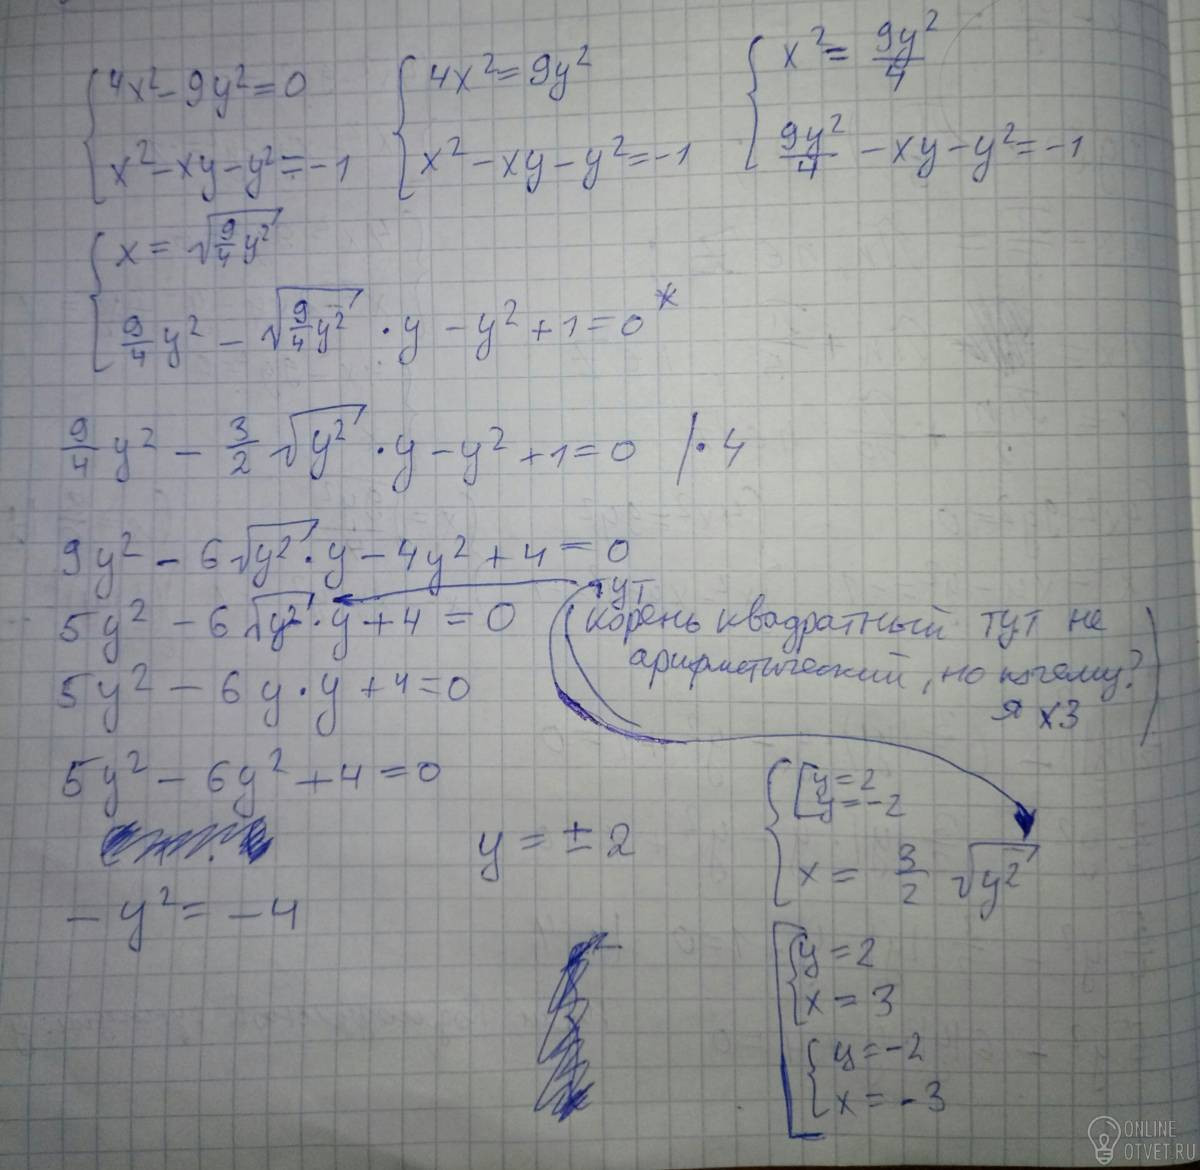 {4x² - 9y² = 0
{x² - xy - y² = -1
{4x² = 9y²
{x² - xy - y² = -1
{x² = 9y²/4
{9y²/4 - xy - y² = -1
{x = √(9/4 y²)
{9/4 y² - √(9/4 y²) · y - y² + 1 = 0*
9/4 y² - 3/2 √(y²) · y - y² + 1 = 0 /· 4
9y² - 6√(y²) · y - 4y² + 4 = 0
5y² - 6√(y²) · y + 4 = 0
5y² - 6y · y + 4 = 0
5y² - 6y² + 4 = 0
-y² = -4
y = ±2
тут
(корень квадратный тут не
арифметический, но почему?
я хз)
{[y = 2
y = -2
{x = 3/2 √(y²)
[{y = 2
{x = 3
{y = -2
{x = -3
ONLINE
OTVET.RU